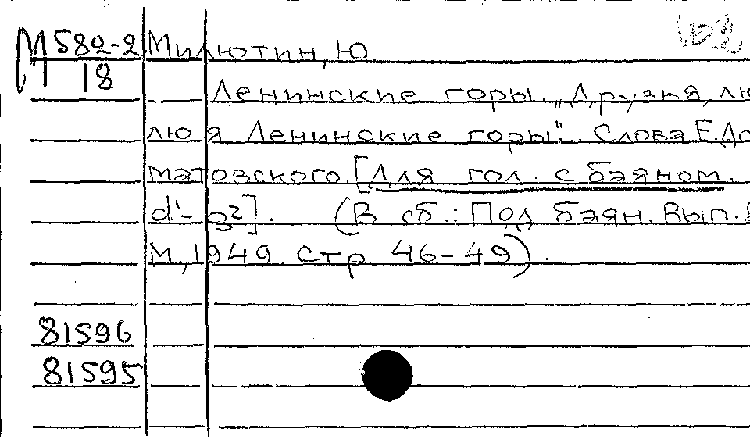 М 582-2 Милютин, Ю
18
Ленинские горы. „Друзья, лю
лю я Ленинские горы". Слова Е. До
матовского [Для гол. с баяном.
d'- g²]. (В сб.: Под баян. Вып.
М, 1949. Стр 46-49).
81596
81595